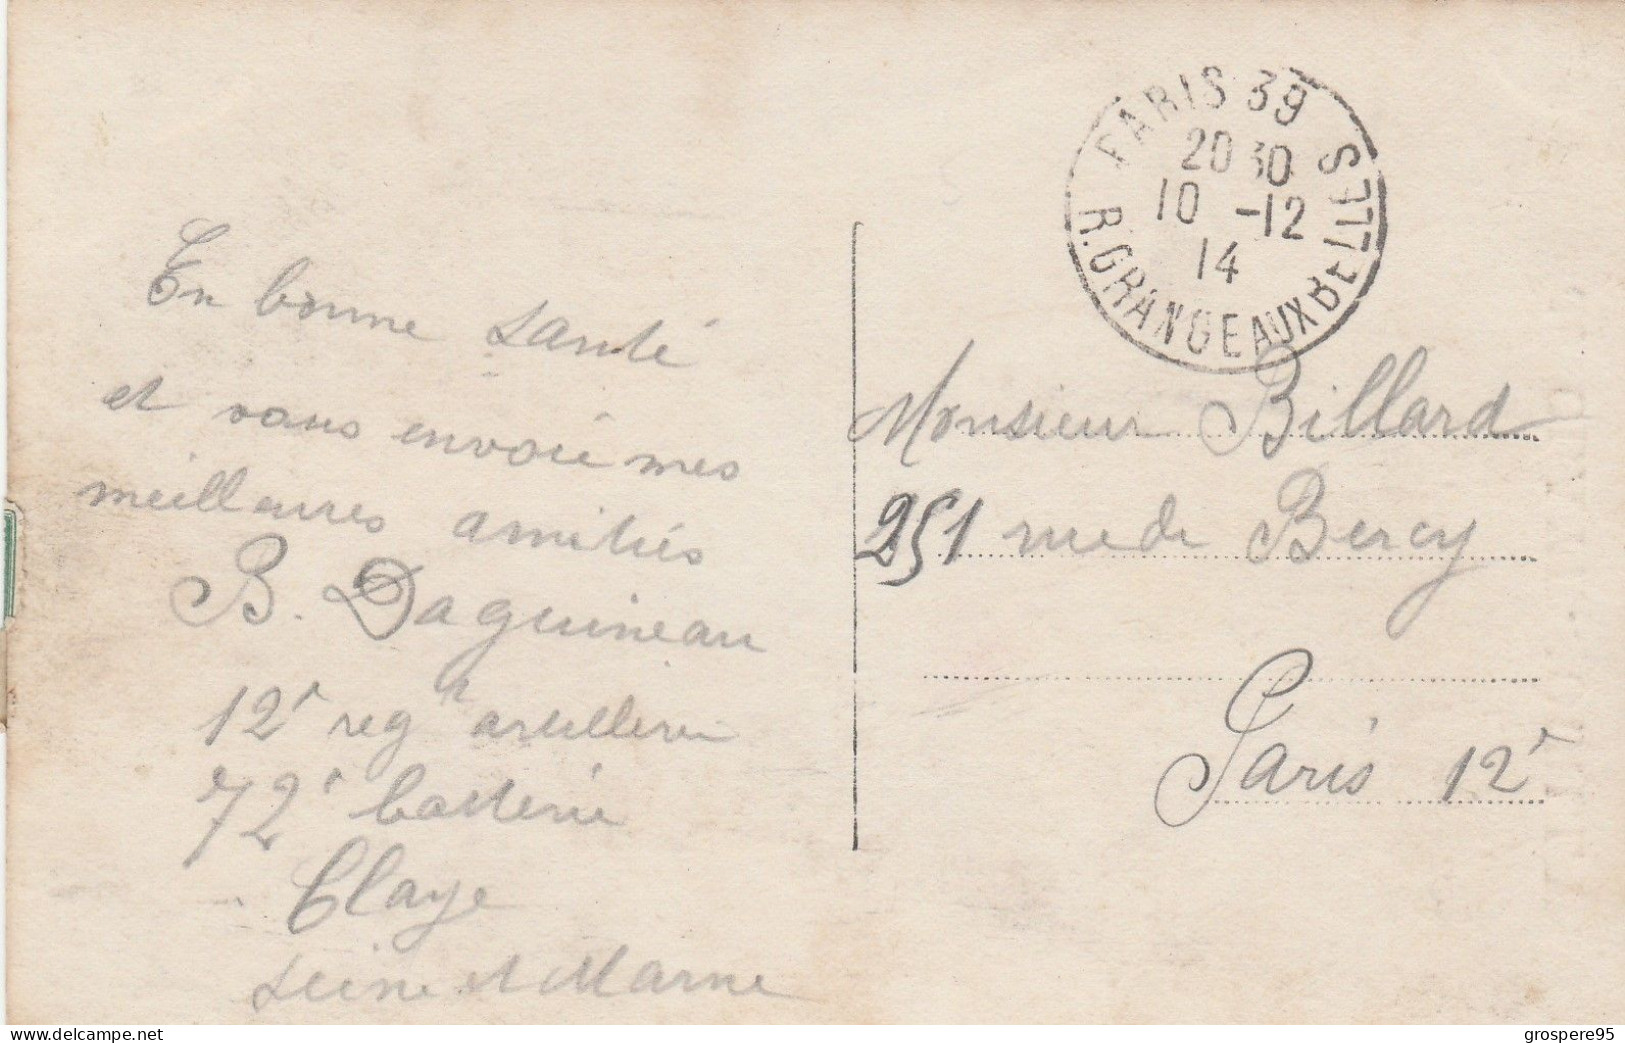 En bonne santé
et vous envoie mes
meilleures amitiés
B. Daguineau
12e regt artillerie
72e batterie
Claye
Seine et Marne
PARIS 39
20 30
10 -12
14
R. GRANGE AUX BELLES
Monsieur Billard
251 rue de Bercy
Paris 12e
delcampe.net
grospere95